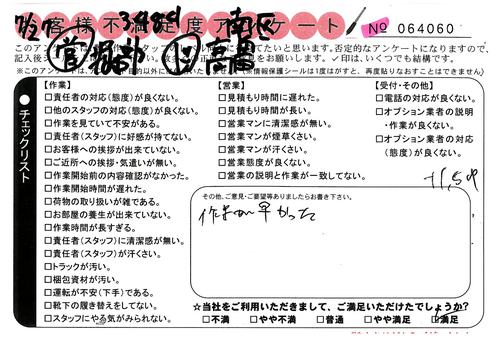 7/27
3484
南区
客様不満足度アンケート
No 064060
このアンケートは
たいと思います。否定的なアンケートになりますので、
記入後
お願いします。✓印は、いくつでも結構です。
※このアンケートは
目的以外に
いません。(※情報保護シールは1度はがすと、再度貼りなおすことはできません)
チェックリスト
【作業】
□責任者の対応(態度)が良くない。
□他のスタッフの対応(態度)が良くない。
□作業を見ていて不安がある。
□責任者(スタッフ)に好感が持てない。
□お客様への挨拶が出来ていない。
□ご近所への挨拶・気遣いが無い。
□作業開始前の内容確認がなかった。
□作業開始時間が遅れた。
□荷物の取り扱いが雑である。
□お部屋の養生が出来ていない。
□作業時間が長すぎる。
□責任者(スタッフ)に清潔感が無い。
□責任者(スタッフ)が汗くさい。
□トラックが汚い。
□梱包資材が汚い。
□運転が不安(下手)である。
□靴下の履き替えをしてない。
□スタッフにやる気がみられない。
【営業】
□見積もり時間に遅れた。
□見積もり時間が長い。
□営業マンに清潔感が無い。
□営業マンが煙草くさい。
□営業マンが汗くさい。
□営業態度が良くない。
□営業の説明と作業が一致してない。
【受付・その他】
□電話の対応が良くない。
□オプション業者の説明
・作業が良くない。
□オプション業者の対応
(態度)が良くない。
その他、ご意見・ご要望等ありましたらお書き下さい。
作業が早かった
☆当社をご利用いただきまして、ご満足いただけたでしょうか?
□不満 □やや不満 □普通 □やや満足 ☑満足